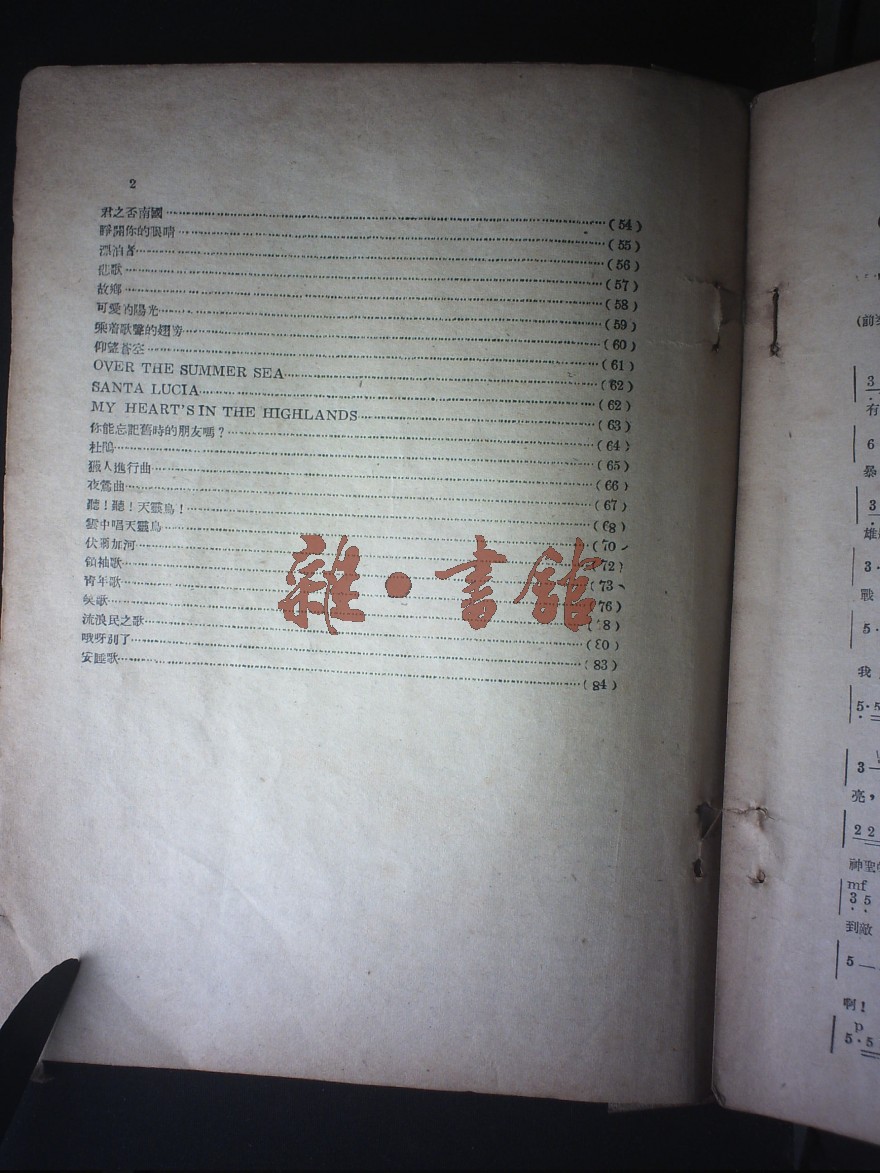 2
君之否南國(54)
睜開你的眼睛(55)
漂泊者(56)
歌(57)
故鄉(58)
可愛的陽光(59)
乘着歌聲的翅膀(60)
仰望蒼空(61)
OVER THE SUMMER SEA(62)
SANTA LUCIA(62)
MY HEART'S IN THE HIGHLANDS(63)
你能忘記舊時的朋友嗎？(64)
杜鵑(65)
獵人進行曲(66)
夜鶯曲(67)
聽！聽！天靈鳥！(68)
雲中唱天靈鳥(70)
伏爾加河(72)
領袖歌(73)
靑年歌(76)
歌(78)
流浪民之歌(80)
哦呀別了(83)
安睡歌(84)
雜·書館
(前奏
3
有
6
暴
3
雄
3·
戰
5·
我
5·5
3—
亮，
2 2
神聖
mf
3 5
到敵
5—
啊！
p
5·5